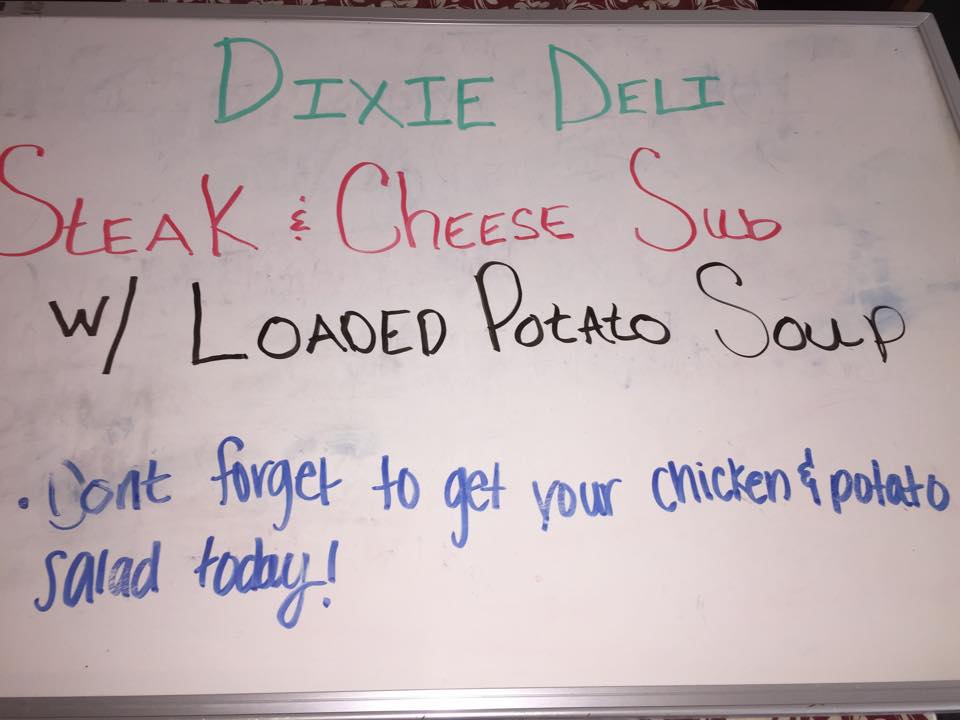 DIXIE DELI
STEAK & CHEESE SUB
W/ LOADED POTATO SOUP
. Dont forget to get your chicken & potato
salad today!